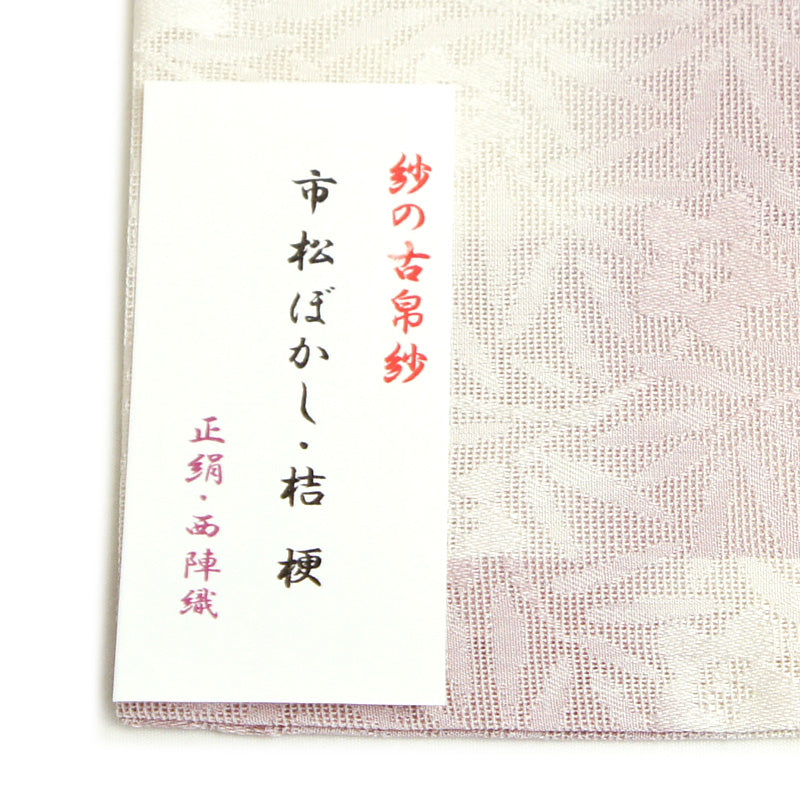 紗の古帛紗
市松ぼかし・桔梗
正絹・西陣織